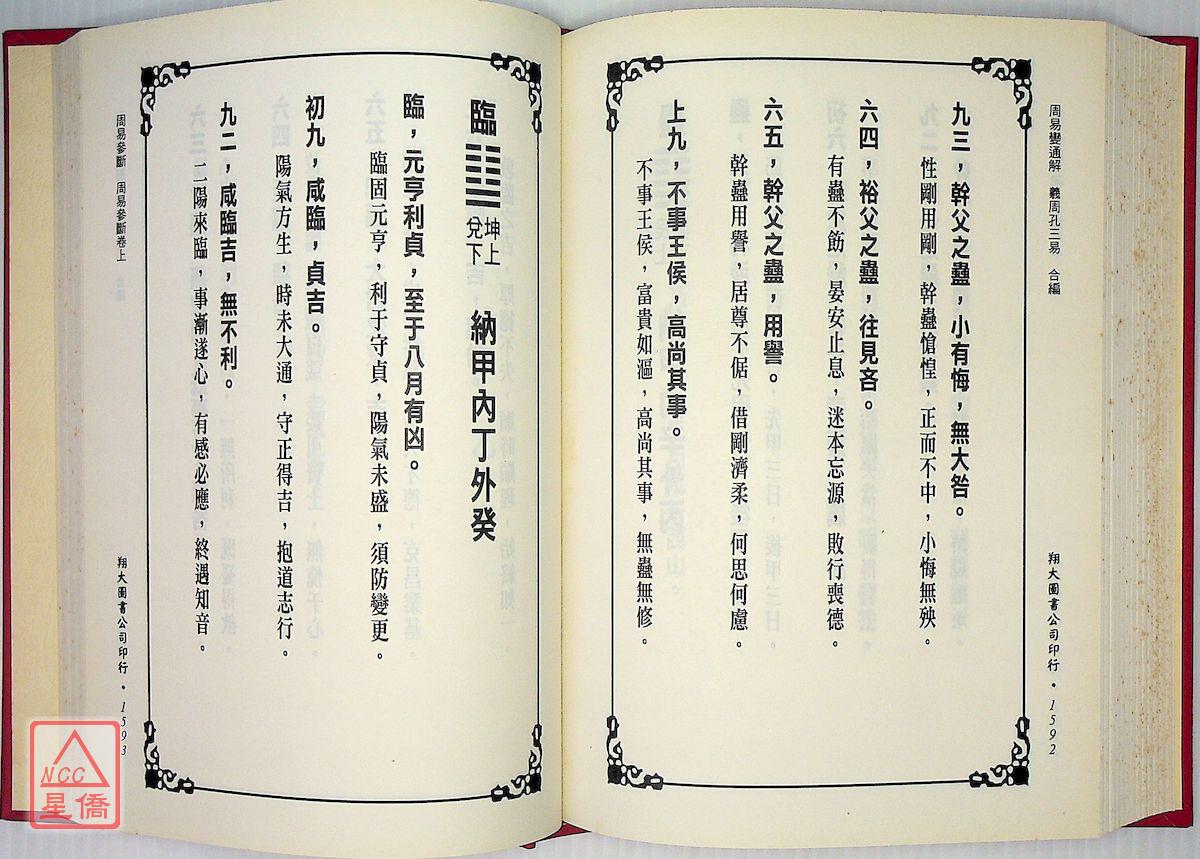 周易變通解　羲周孔三易　合編
翔大圖書公司印行・1592
九三，幹父之蠱，小有悔，無大咎。
性剛用剛，幹蠱愴惶，正而不中，小悔無殃。
六四，裕父之蠱，往見吝。
有蠱不飭，晏安止息，迷本忘源，敗行喪德。
六五，幹父之蠱，用譽。
幹蠱用譽，居尊不倨，借剛濟柔，何思何慮。
上九，不事王侯，高尚其事。
不事王侯，富貴如漚，高尚其事，無蠱無修。
臨
坤上
兌下
納甲內丁外癸
臨，元亨利貞，至于八月有凶。
臨固元亨，利于守貞，陽氣未盛，須防變更。
初九，咸臨，貞吉。
陽氣方生，時未大通，守正得吉，抱道志行。
九二，咸臨吉，無不利。
二陽來臨，事漸遂心，有感必應，終遇知音。
周易參斷　周易參斷卷上
翔大圖書公司印行・1593
NCC
星僑